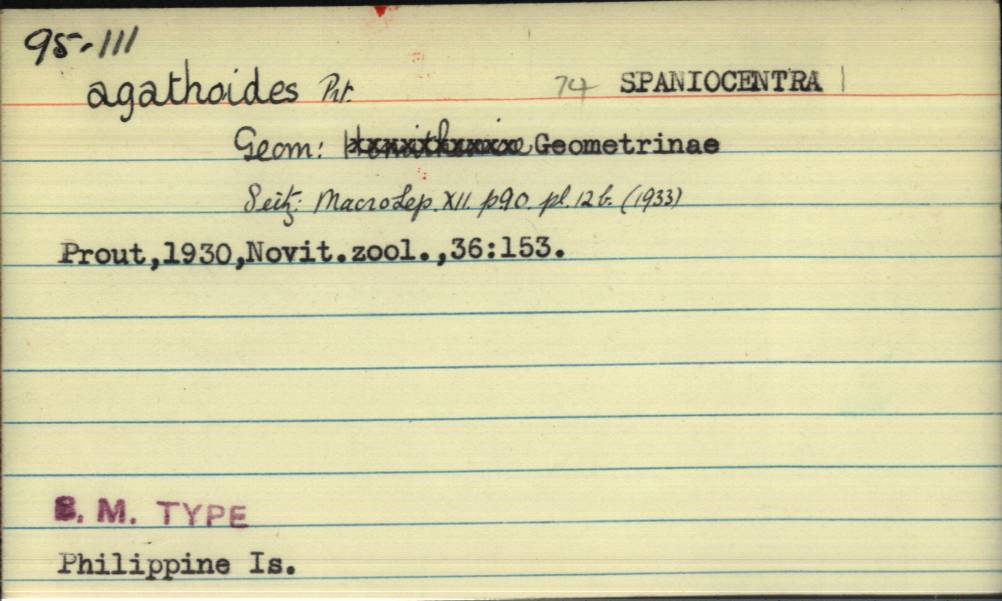 95-111
agathoides Prt. 74 SPANIOCENTRA
Geom: Geometrinae
Seitz: MacroLep. XII. p90. pl. 12 b. (1933)
Prout,1930,Novit.zool.,36:153.
B. M. TYPE
Philippine Is.